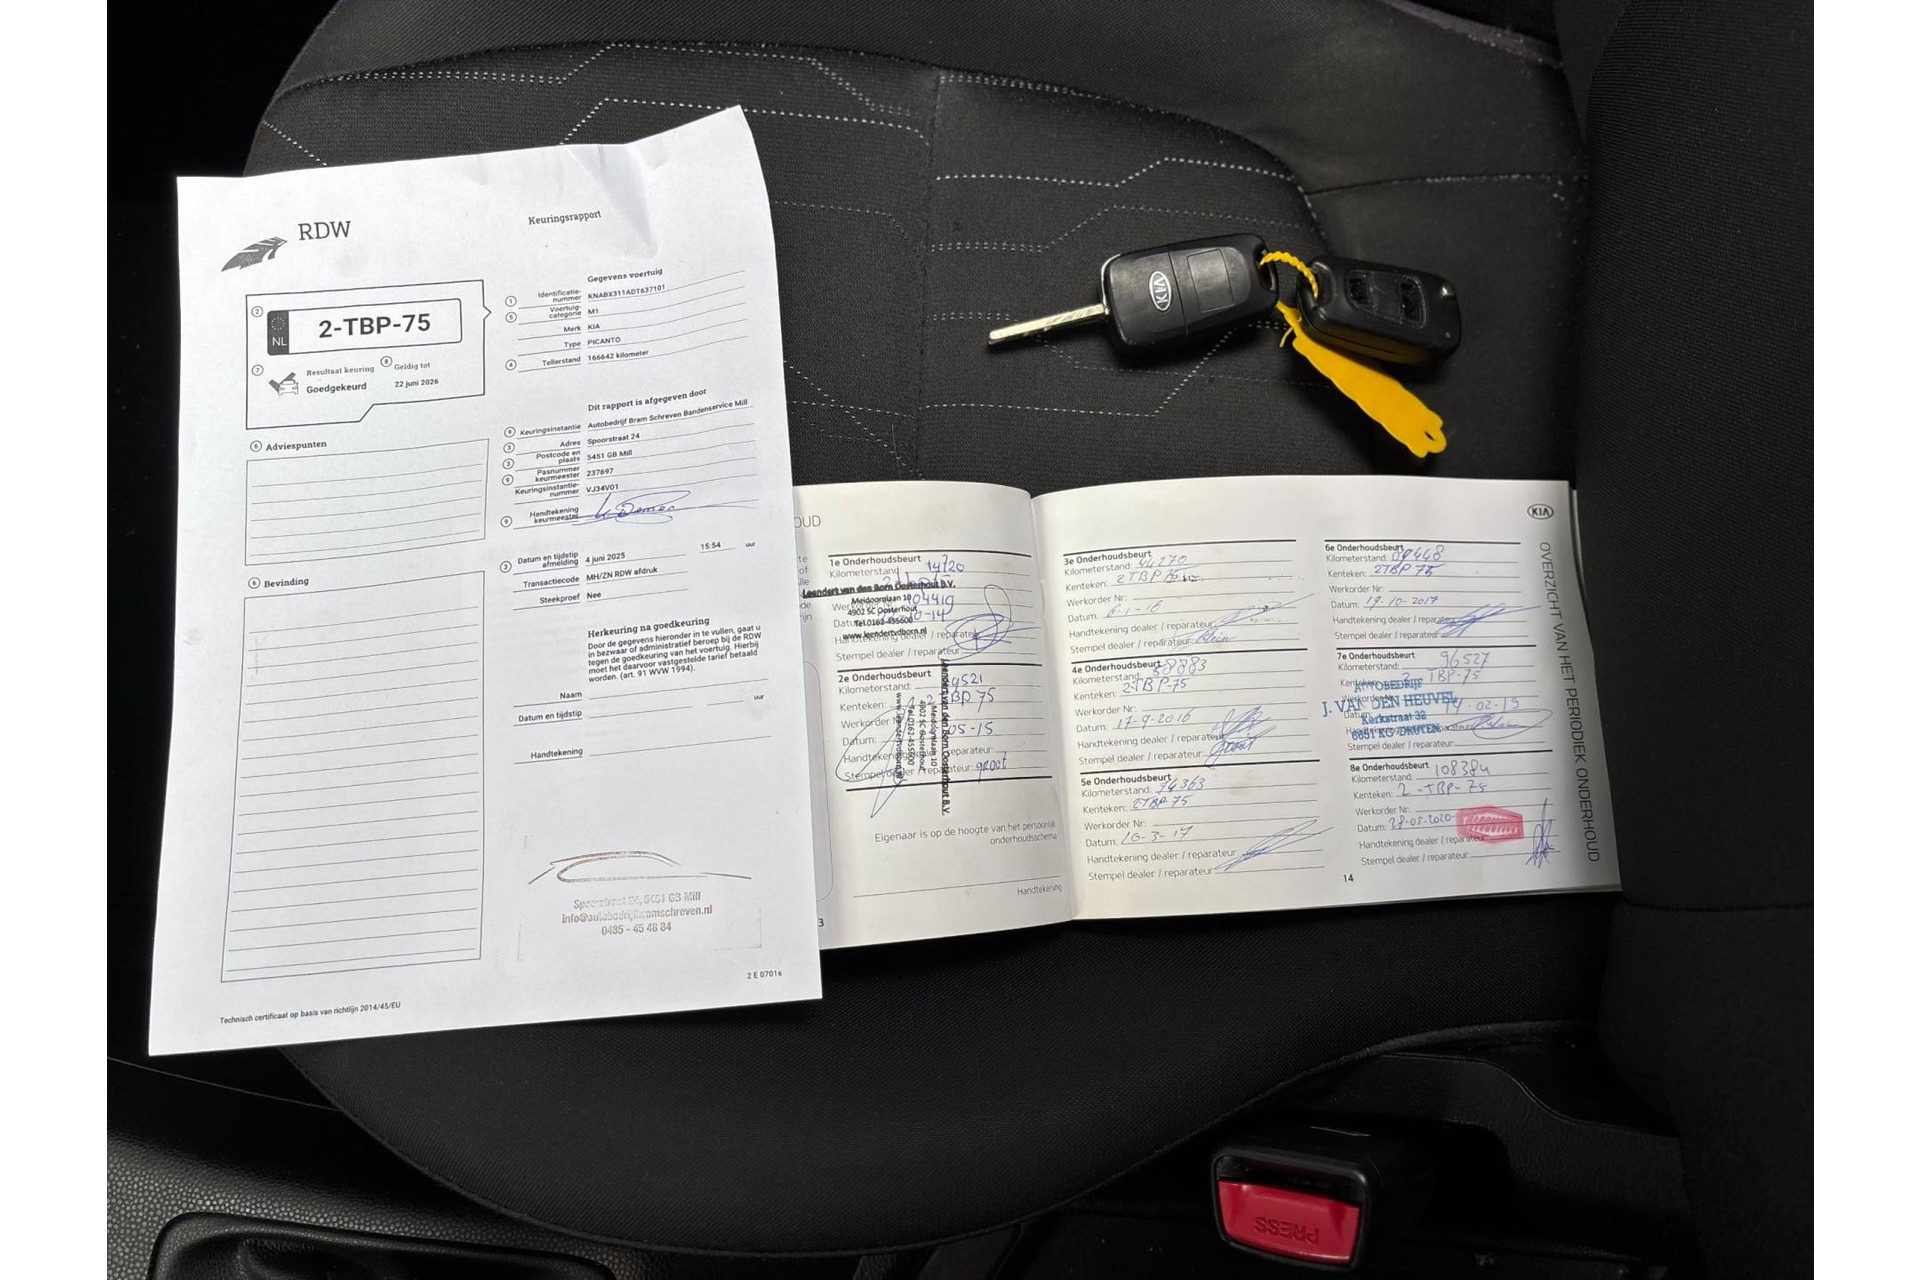 RDW
Keuringsrapport
2
NL
2-TBP-75
7
Resultaat keuring
Goedgekeurd
8
Geldig tot
22 juni 2026
6 Adviespunten
6 Bevinding
Gegevens voertuig
1 Identificatie-
nummer KNABX311ADT637101
5 Voertuig-
categorie M1
Merk KIA
Type PICANTO
4 Tellerstand 166642 kilometer
Dit rapport is afgegeven door
Keuringsinstantie Autobedrijf Bram Schreven Bandenservice Mill
3 Adres Spoorstraat 24
3 Postcode en
plaats 5451 GB Mill
9 Pasnummer
keurmeester 237697
Keuringsinstantie-
nummer VJ34V01
9 Handtekening
keurmeester
3 Datum en tijdstip
afmelding 4 juni 2025 15:54 uur
Transactiecode MH/ZN RDW afdruk
Steekproef Nee
Herkeuring na goedkeuring
Door de gegevens hieronder in te vullen, gaat u
in bezwaar of administratief beroep bij de RDW
tegen de goedkeuring van het voertuig. Hierbij
moet het daarvoor vastgestelde tarief betaald
worden. (art. 91 WVW 1994).
Naam
Datum en tijdstip uur
Handtekening
Spoorstraat 24, 5451 GB Mill
info@autobedrijfbramschreven.nl
0485 - 45 48 84
2 E 0701s
Technisch certificaat op basis van richtlijn 2014/45/EU
KIA
OUD
1e Onderhoudsbeurt
Kilometerstand
Leendert van den Born Oosterhout B.V.
Meidoornlaan 10
4902 SC Oosterhout
Tel. 0162-455600
www.leendertvdborn.nl
Handtekening dealer / reparateur
Stempel dealer / reparateur:
2e Onderhoudsbeurt
Kilometerstand: 9521
Kenteken: BP 75
Werkorder Nr
Datum: 05-15
Handtekening reparateur:
Stempel dealer / reparateur: groot
Leendert van den Born Oosterhout B.V.
Meidoornlaan 10
4902 SC Oosterhout
Tel. 0162-455600
www.leendertvdborn.nl
Eigenaar is op de hoogte van het persoonlijk
onderhoudsschema
Handtekening
3
3e Onderhoudsbeurt
Kilometerstand: 44270
Kenteken: 2TBP 75
Werkorder Nr:
Datum: 6-1-16
Handtekening dealer / reparateur:
Stempel dealer / reparateur:
4e Onderhoudsbeurt
Kilometerstand: 58883
Kenteken: 2TBP-75
Werkorder Nr:
Datum: 17-9-2016
Handtekening dealer / reparateur:
Stempel dealer / reparateur: groot
5e Onderhoudsbeurt
Kilometerstand: 74363
Kenteken: 2TBP-75
Werkorder Nr:
Datum: 16-3-17
Handtekening dealer / reparateur:
Stempel dealer / reparateur:
6e Onderhoudsbeurt
Kilometerstand:
Kenteken: 2TBP 75
Werkorder Nr:
Datum: 19-10-2017
Handtekening dealer / reparateur:
Stempel dealer / reparateur:
7e Onderhoudsbeurt
Kilometerstand: 96527
Kenteken: 2 TBP-75
AUTOBEDRIJF
J. VAN DEN HEUVEL
Kerkstraat 32
6651 KG DRUTEN
14-02-19
Stempel dealer / reparateur:
8e Onderhoudsbeurt
Kilometerstand: 108384
Kenteken: 2-TBP-75
Werkorder Nr:
Datum: 28-05-2020
Handtekening dealer / reparateur:
Stempel dealer / reparateur:
14
KIA
OVERZICHT VAN HET PERIODIEK ONDERHOUD
PRESS